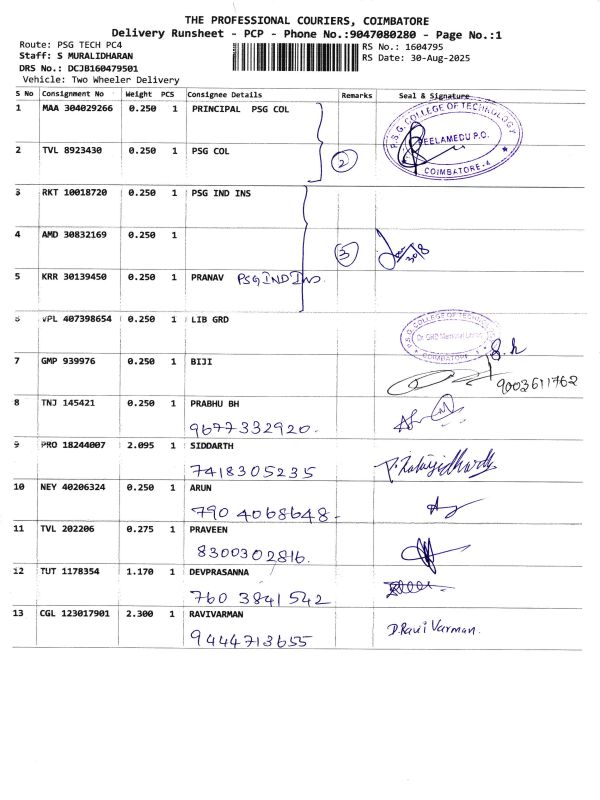 THE PROFESSIONAL COURIERS, COIMBATORE
Delivery Runsheet - PCP - Phone No.:9047080280 - Page No.:1
Route: PSG TECH PC4 RS No.: 1604795
Staff: S MURALIDHARAN RS Date: 30-Aug-2025
DRS No.: DCJB160479501
Vehicle: Two Wheeler Delivery
S No Consignment No Weight PCS Consignee Details Remarks Seal & Signature
1 MAA 304029266 0.250 1 PRINCIPAL PSG COL
P.S.G. COLLEGE OF TECHNOLOGY
PEELAMEDU P.O.
COIMBATORE-4
2 TVL 8923430 0.250 1 PSG COL 2
3 RKT 10018720 0.250 1 PSG IND INS
4 AMD 30832169 0.250 1 3 30/8
5 KRR 30139450 0.250 1 PRANAV PSG IND INS.
6 VPL 407398654 0.250 1 LIB GRD
P.S.G. COLLEGE OF TECHNOLOGY
Dr. GRD Memorial Library
COIMBATORE
7 GMP 939976 0.250 1 BIJI
9003611762
8 TNJ 145421 0.250 1 PRABHU BH
9677332920.
9 PRO 18244007 2.095 1 SIDDARTH
7418305235
10 NEY 40206324 0.250 1 ARUN
790 4068648-
11 TVL 202206 0.275 1 PRAVEEN
8300302816.
12 TUT 1178354 1.170 1 DEVPRASANNA
760 3841542
13 CGL 123017901 2.300 1 RAVIVARMAN D.Ravi Varman.
9444713655